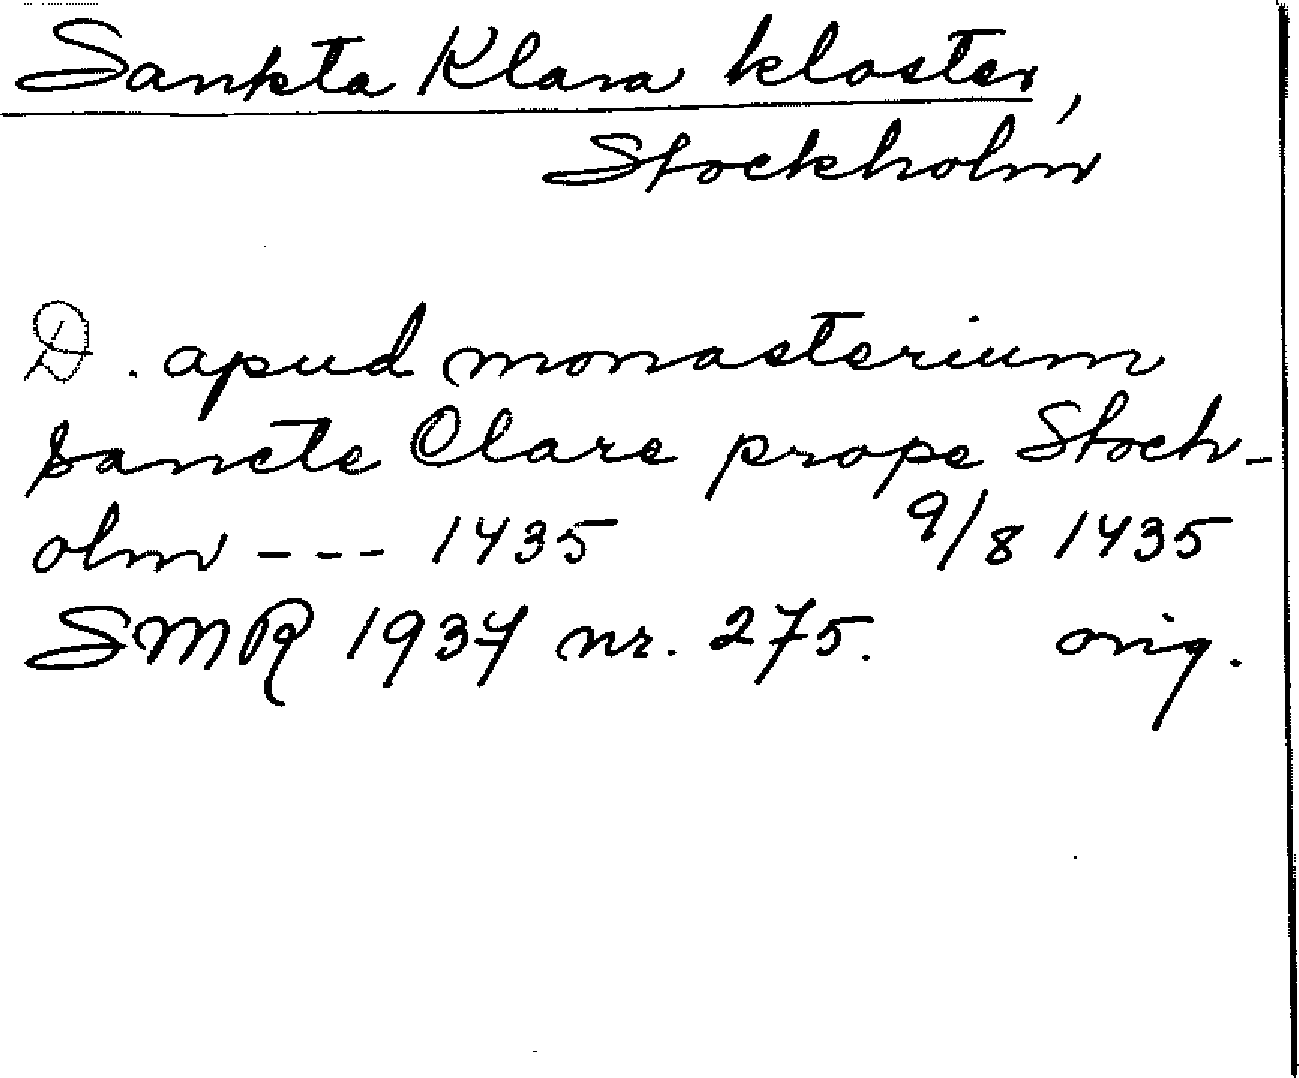 Sankta Klara kloster,
Stockholm
D. apud monasterium
sancte Clare prope Stock-
olm - - - 1435 9/8 1435
SMR 1937 nr. 275. orig.